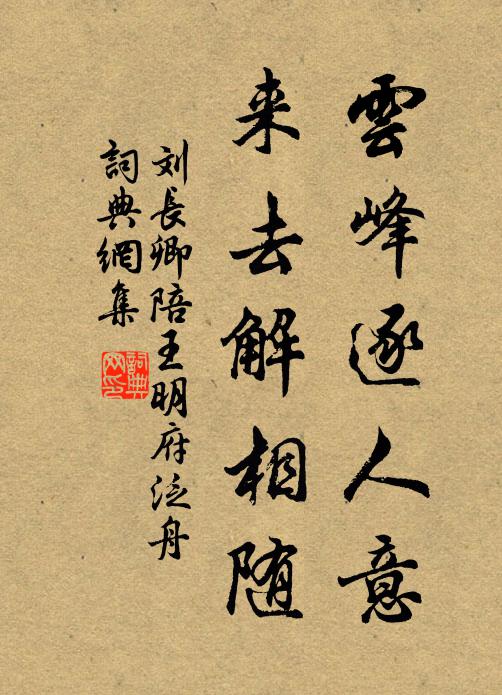 雲峰逐人意
来去解相随
刘長卿陪王明府泛舟
詞典網集
詞典网印